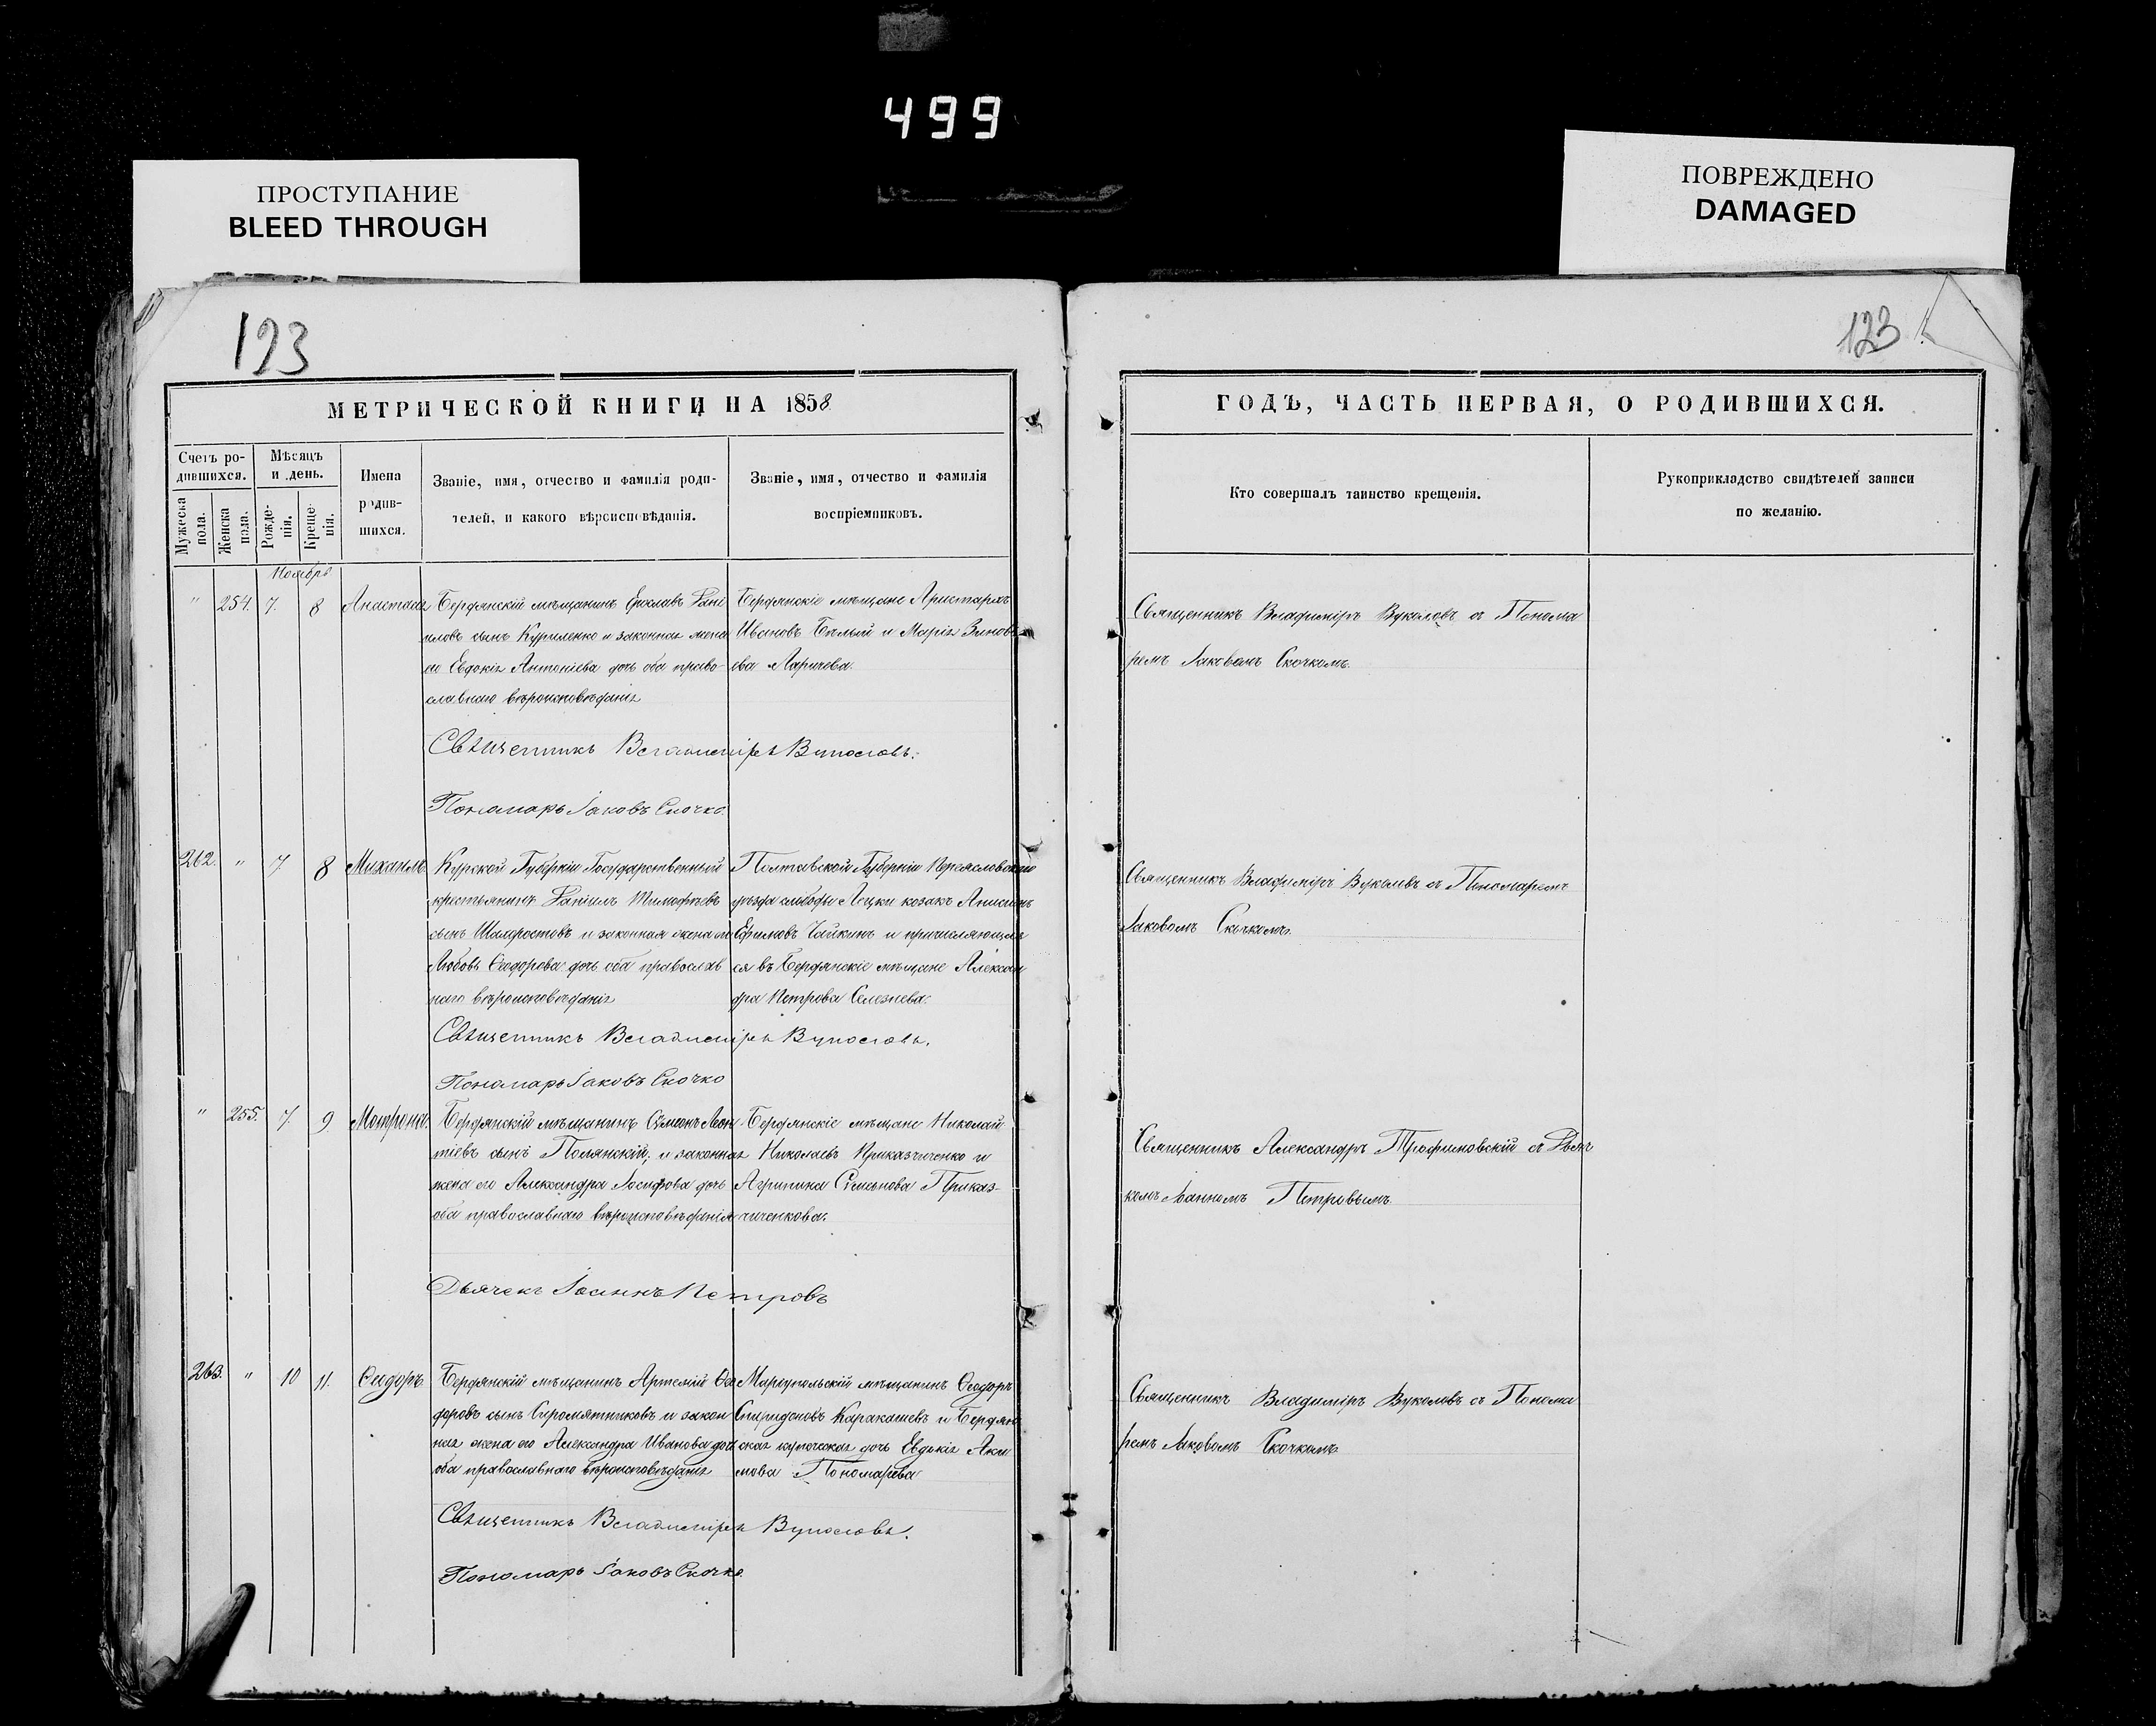 499
ПРОСТУПАНИЕ
BLEED THROUGH
ПОВРЕЖДЕНО
DAMAGED
123
МЕТРИЧЕСКОЙ КНИГИ НА 1858
Счетъ ро-
дившихся.
Мужеска
пола.
Женска
пола.
Мѣсяцъ
и день.
Рожде-
нія.
Креще-
нія.
Имена
родив-
шихся.
Званіе, имя, отчество и фамилія роди-
телей, и какого вѣроисповѣданія.
Званіе, имя, отчество и фамилія
воспріемниковъ.
Ноябрь
" 254. 7. 8 Анастасія
Бердянскій мѣщанинъ Дані
иловъ сынъ Куриленко и законная жена
Евдокія Антоніева дочь оба право-
славнаго вѣроисповѣданія
Бердянскіе мѣщане Аристархъ
Ивановъ Бѣлый и Марія Зиновь
ева Ларичева.
Священникъ Владиміръ Вуколовъ.
Пономарь Іаковъ Скочко.
262. " 7 8 Михаилъ
Курской Губерніи Государственный
крестьянинъ Даніилъ Тимофѣевъ
сынъ и законная жена его
Любовь Ѳеодорова дочь оба православ
наго вѣроисповѣданія
Полтавской Губерніи Переясловскаго
уѣзда слободы козакъ Анисимъ
Ефимовъ Чайкинъ и причисляющая
ся въ Бердянскіе мѣщане Алексан
дра Петрова Селезнева.
Священникъ Владиміръ Вуколовъ.
Пономарь Іаковъ Скочко
" 255. 7. 9 Матрона.
Бердянскій мѣщанинъ Симеонъ Леон
тіевъ сынъ Полянскій, и законная
жена его Александра Іосифова дочь
оба православнаго вѣроисповѣданія
Бердянскіе мѣщане Николай
Николаевъ Приказчиченко и
Агрипина Симонова Приказ-
чиченкова.
Дьячекъ Іоаннъ Петровъ
263. " 10 11. Сидоръ
Бердянскій мѣщанинъ Артемій Ѳео
доровъ сынъ Сыромятниковъ и закон
ная жена его Александра Иванова дочь
оба православнаго вѣроисповѣданія
Маріупольскій мѣщанинъ Ѳеодоръ
Спиридоновъ Каракашевъ и Бердян
ская купеческая дочь Евдокія Аки
мова Пономарева
Священникъ Владиміръ Вуколовъ.
Пономарь Іаковъ Скочко.
123
ГОДЪ, ЧАСТЬ ПЕРВАЯ, О РОДИВШИХСЯ.
Кто совершалъ таинство крещенія.
Рукоприкладство свидѣтелей записи
по желанію.
Священникъ Владиміръ Вуколовъ съ Понома
ремъ Іаковомъ Скочкомъ.
Священникъ Владиміръ Вуколовъ съ Пономаремъ
Іаковомъ Скочкомъ.
Священникъ Александръ Трофимовскій съ Дьяч
комъ Іоанномъ Петровымъ
Священникъ Владиміръ Вуколовъ съ Понома
ремъ Іаковомъ Скочкомъ.